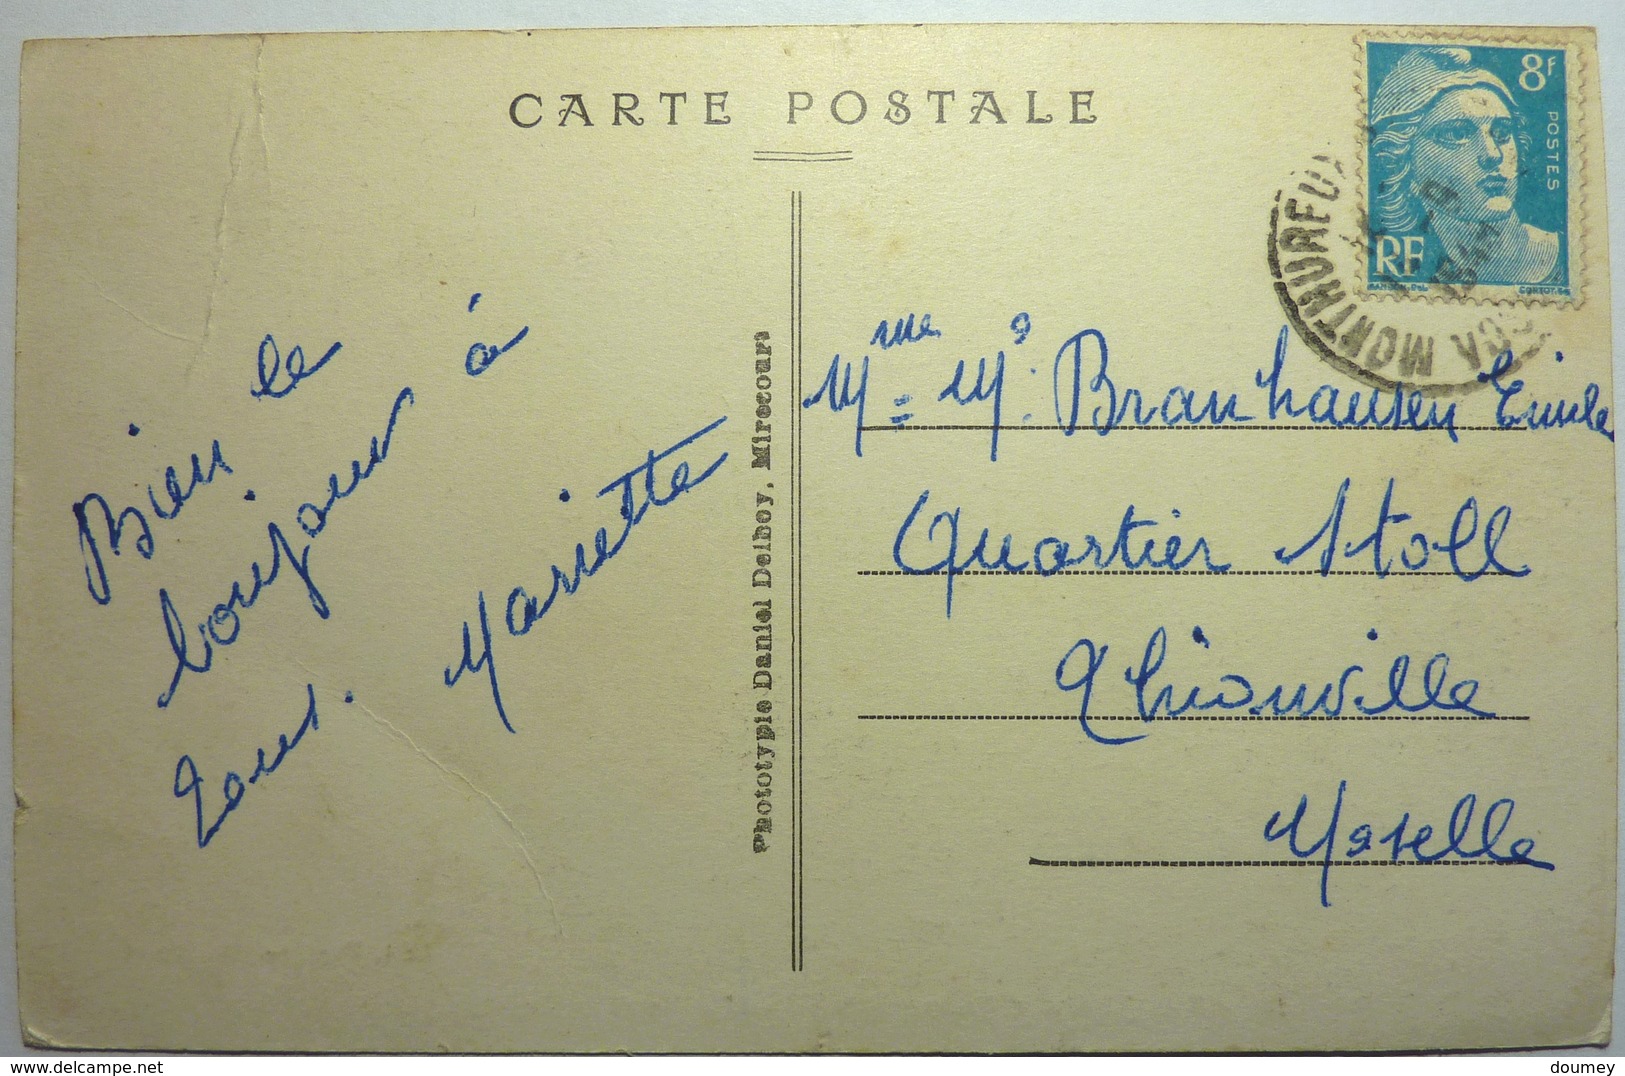 CARTE POSTALE
8F
POSTES
RF
MONTHUREUX
Bien le
bonjour à
tous.
Mariette
Phototypie Daniel Delboy, Mirecourt
Mme = Mr. Branhausen Emile
Quartier Stoll
Thionville
Moselle
delcampe.net
doumey